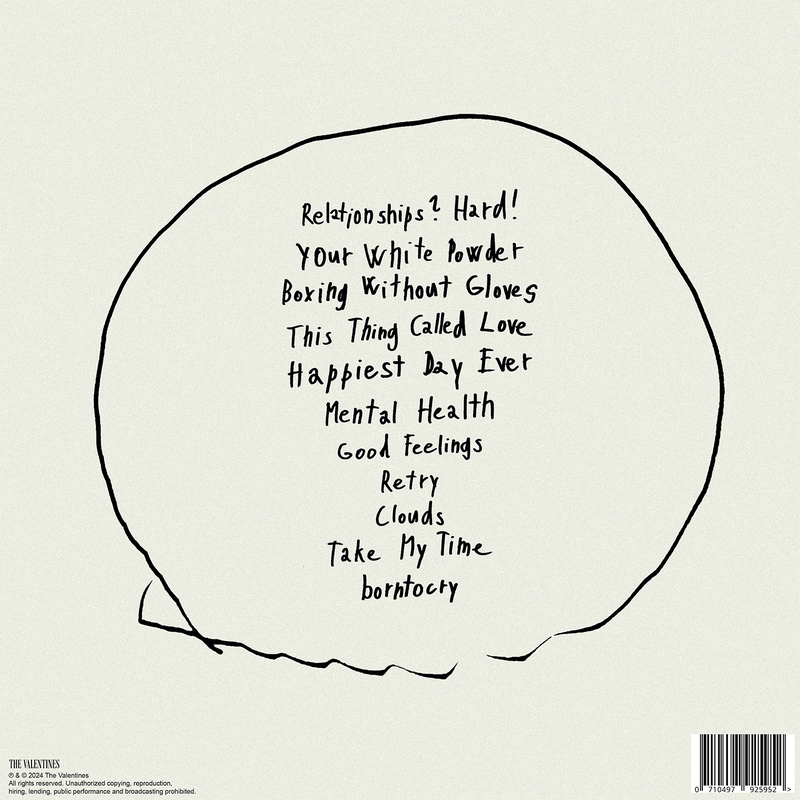 Relationships? Hard!
Your White Powder
Boxing Without Gloves
This Thing Called Love
Happiest Day Ever
Mental Health
Good Feelings
Retry
Clouds
Take My Time
borntocry
THE VALENTINES
℗ & © 2024 The Valentines
All rights reserved. Unauthorized copying, reproduction,
hiring, lending, public performance and broadcasting prohibited.
0 710497 925952 >